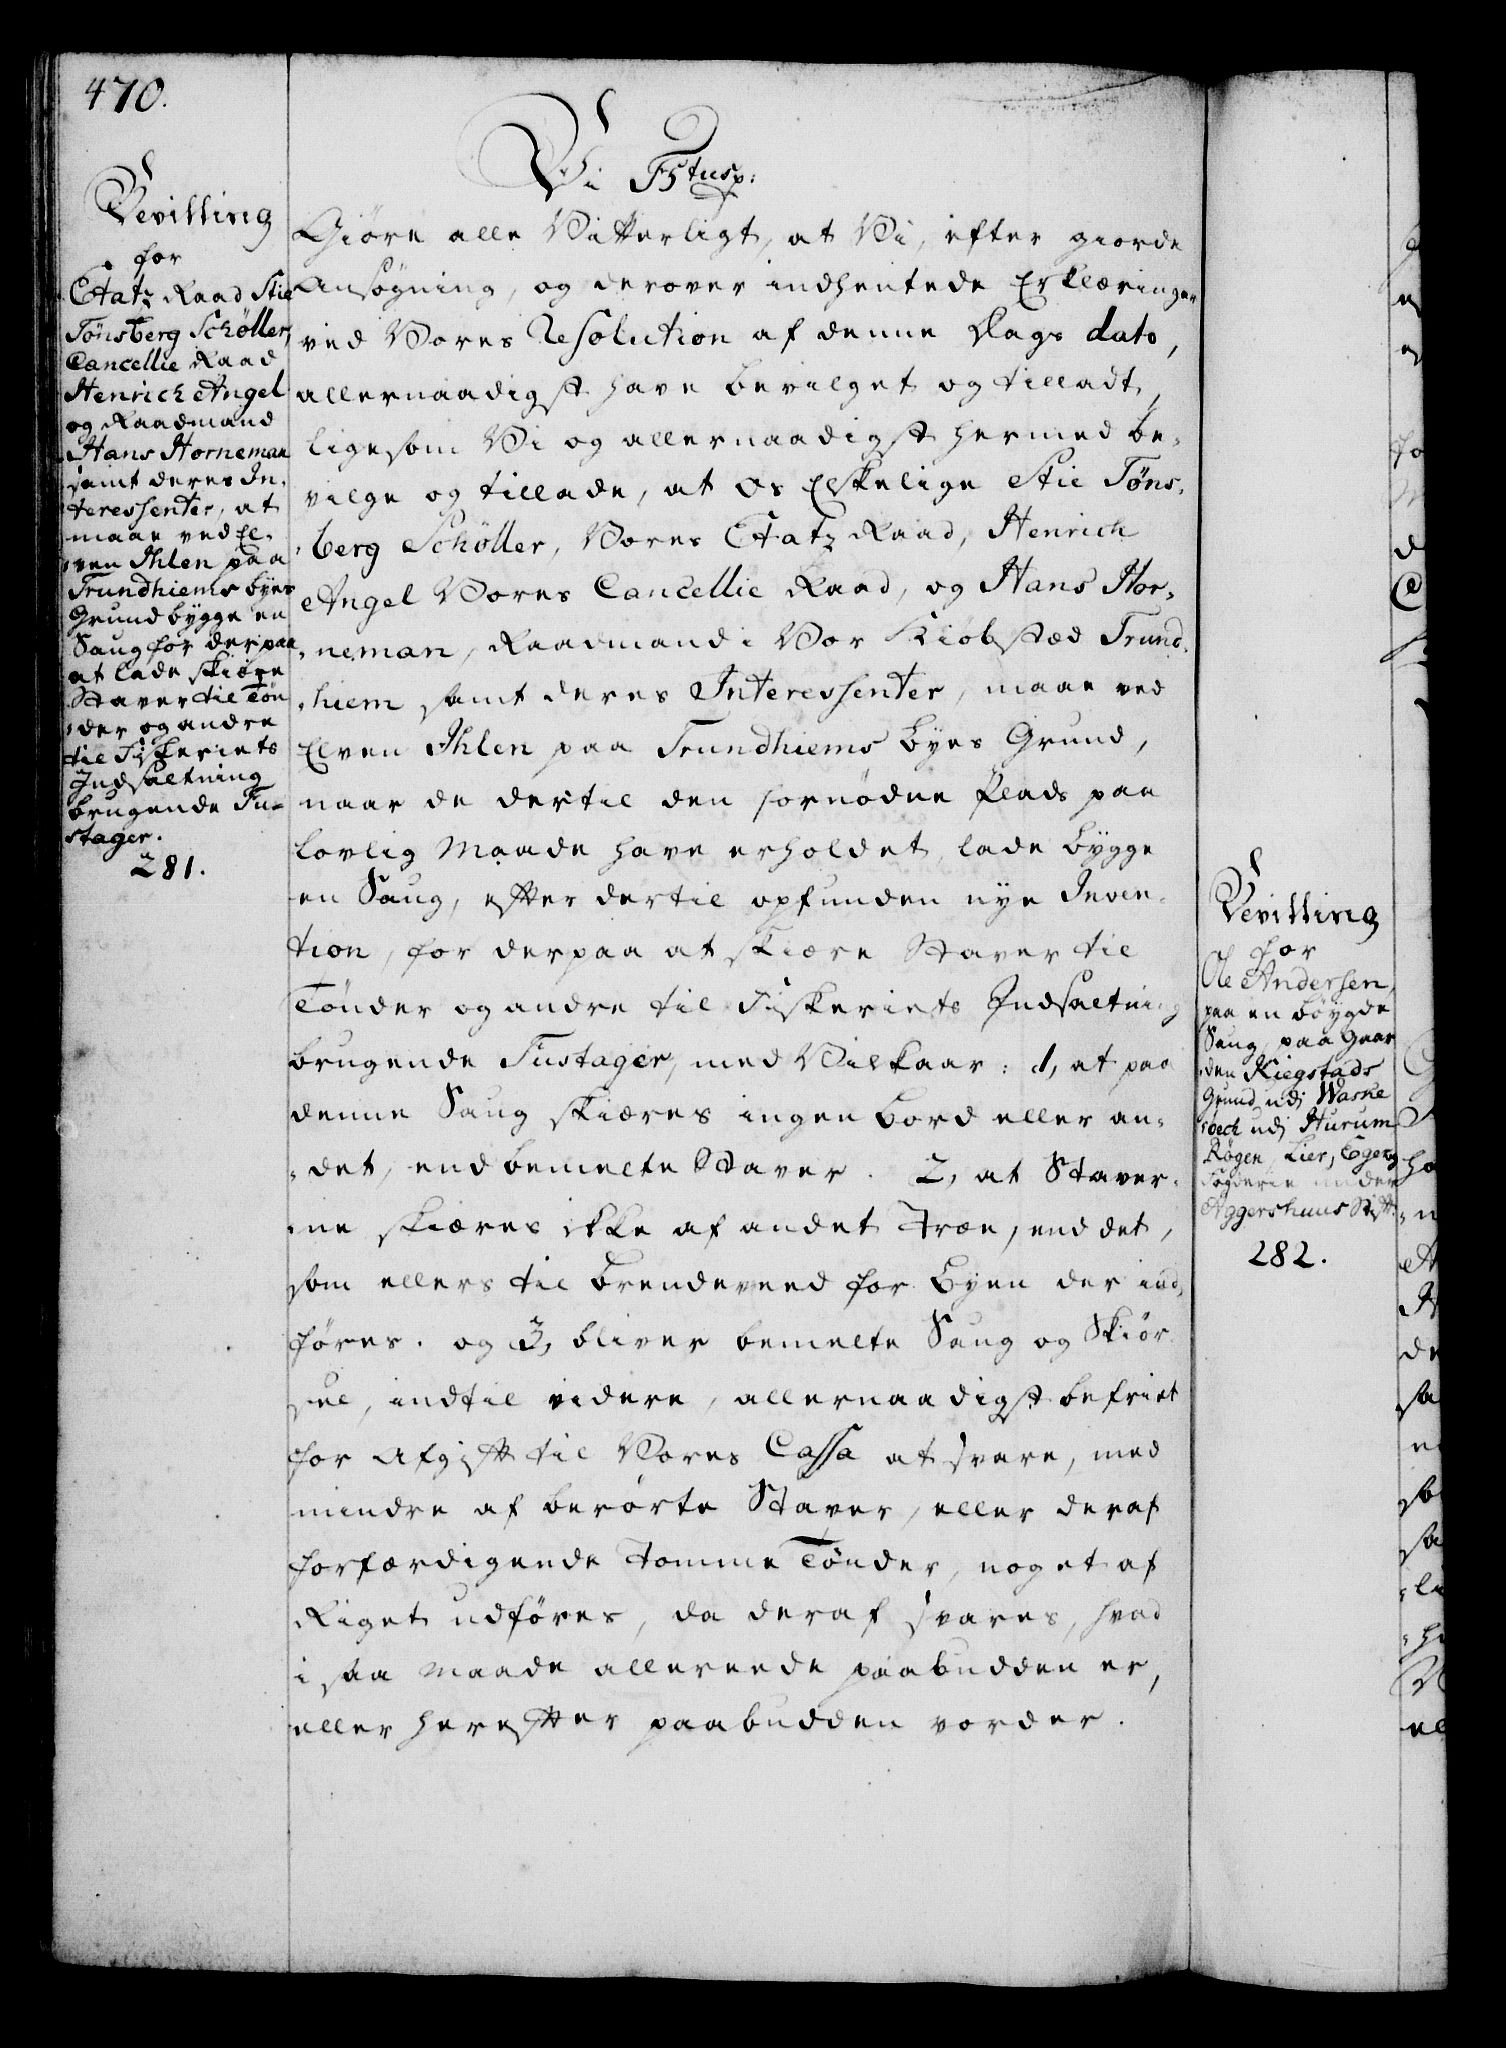 470.
Bevilling
for
Etatz Raad Stie
Tönsberg Schöller,
Cancellie Raad
Henrich Angel
og Raadmand
Hans Horneman
samt deres In-
teressenter, at
maae ved El-
ven Ihlen paa
Trundhiems byes
Grund bygge en
Saug for derpaa
at lade skiære
Staver til Tön
der og andre
til Fiskeriets
Indsaltning
brugende Fu-
stager.
281.
Vi F5tusp:
Giöre alle Vitterligt, at Vi, efter giorde
Ansögning, og derover indhentede Erklæringer
ved Vores Resolution af denne Dags dato,
allernaadigst have bevilget og tilladt,
ligesom Vi og allernaadigst hermed be-
vilge og tillade, at Os Elskelige Stie Töns-
berg Schöller, Vores Etatz Raad, Henrich
Angel Vores Cancellie Raad, og Hans Hor-
neman, Raadmand i Vor Kiöbstæd Trund-
hiem samt deres Interessenter, maae ved
Elven Ihlen paa Trundhiems Byes Grund,
naar de dertil den fornödne Plads paa
lovlig Maade have erholdet, lade bygge
en Saug, efter dertil opfunden nye Inven-
tion, for derpaa at skiære Staver til
Tönder og andre til Fiskeriets Indsaltning
brugende Fustager, med Vilkaar: 1, at paa
denne Saug skiæres ingen Bord eller an-
det, end bemelte Staver. 2, at Staver-
ne skiæres ikke af andet Træe, end det,
som ellers til Brendeveed for Byen der ind-
föres. og 3, bliver bemelte Saug og Skiör-
sel, indtil videre, allernaadigst befriet
for Afgift til Vores Cassa at svare, med
mindre af berörte Staver, eller deraf
forfærdigende tomme Tönder, noget af
Riget udföres, da deraf svares, hvad
i saa Maade allereede paabudden er,
eller herefter paabudden vorder.
Bevilling
for
Ole Andersen,
paa en böygde
Saug, paa Gaar
den Kiegstads
Grund udi Warke
bech udi Hurum
Røgen, Lier, Egers
Fogderie under
Aggershuus Stift.
282.